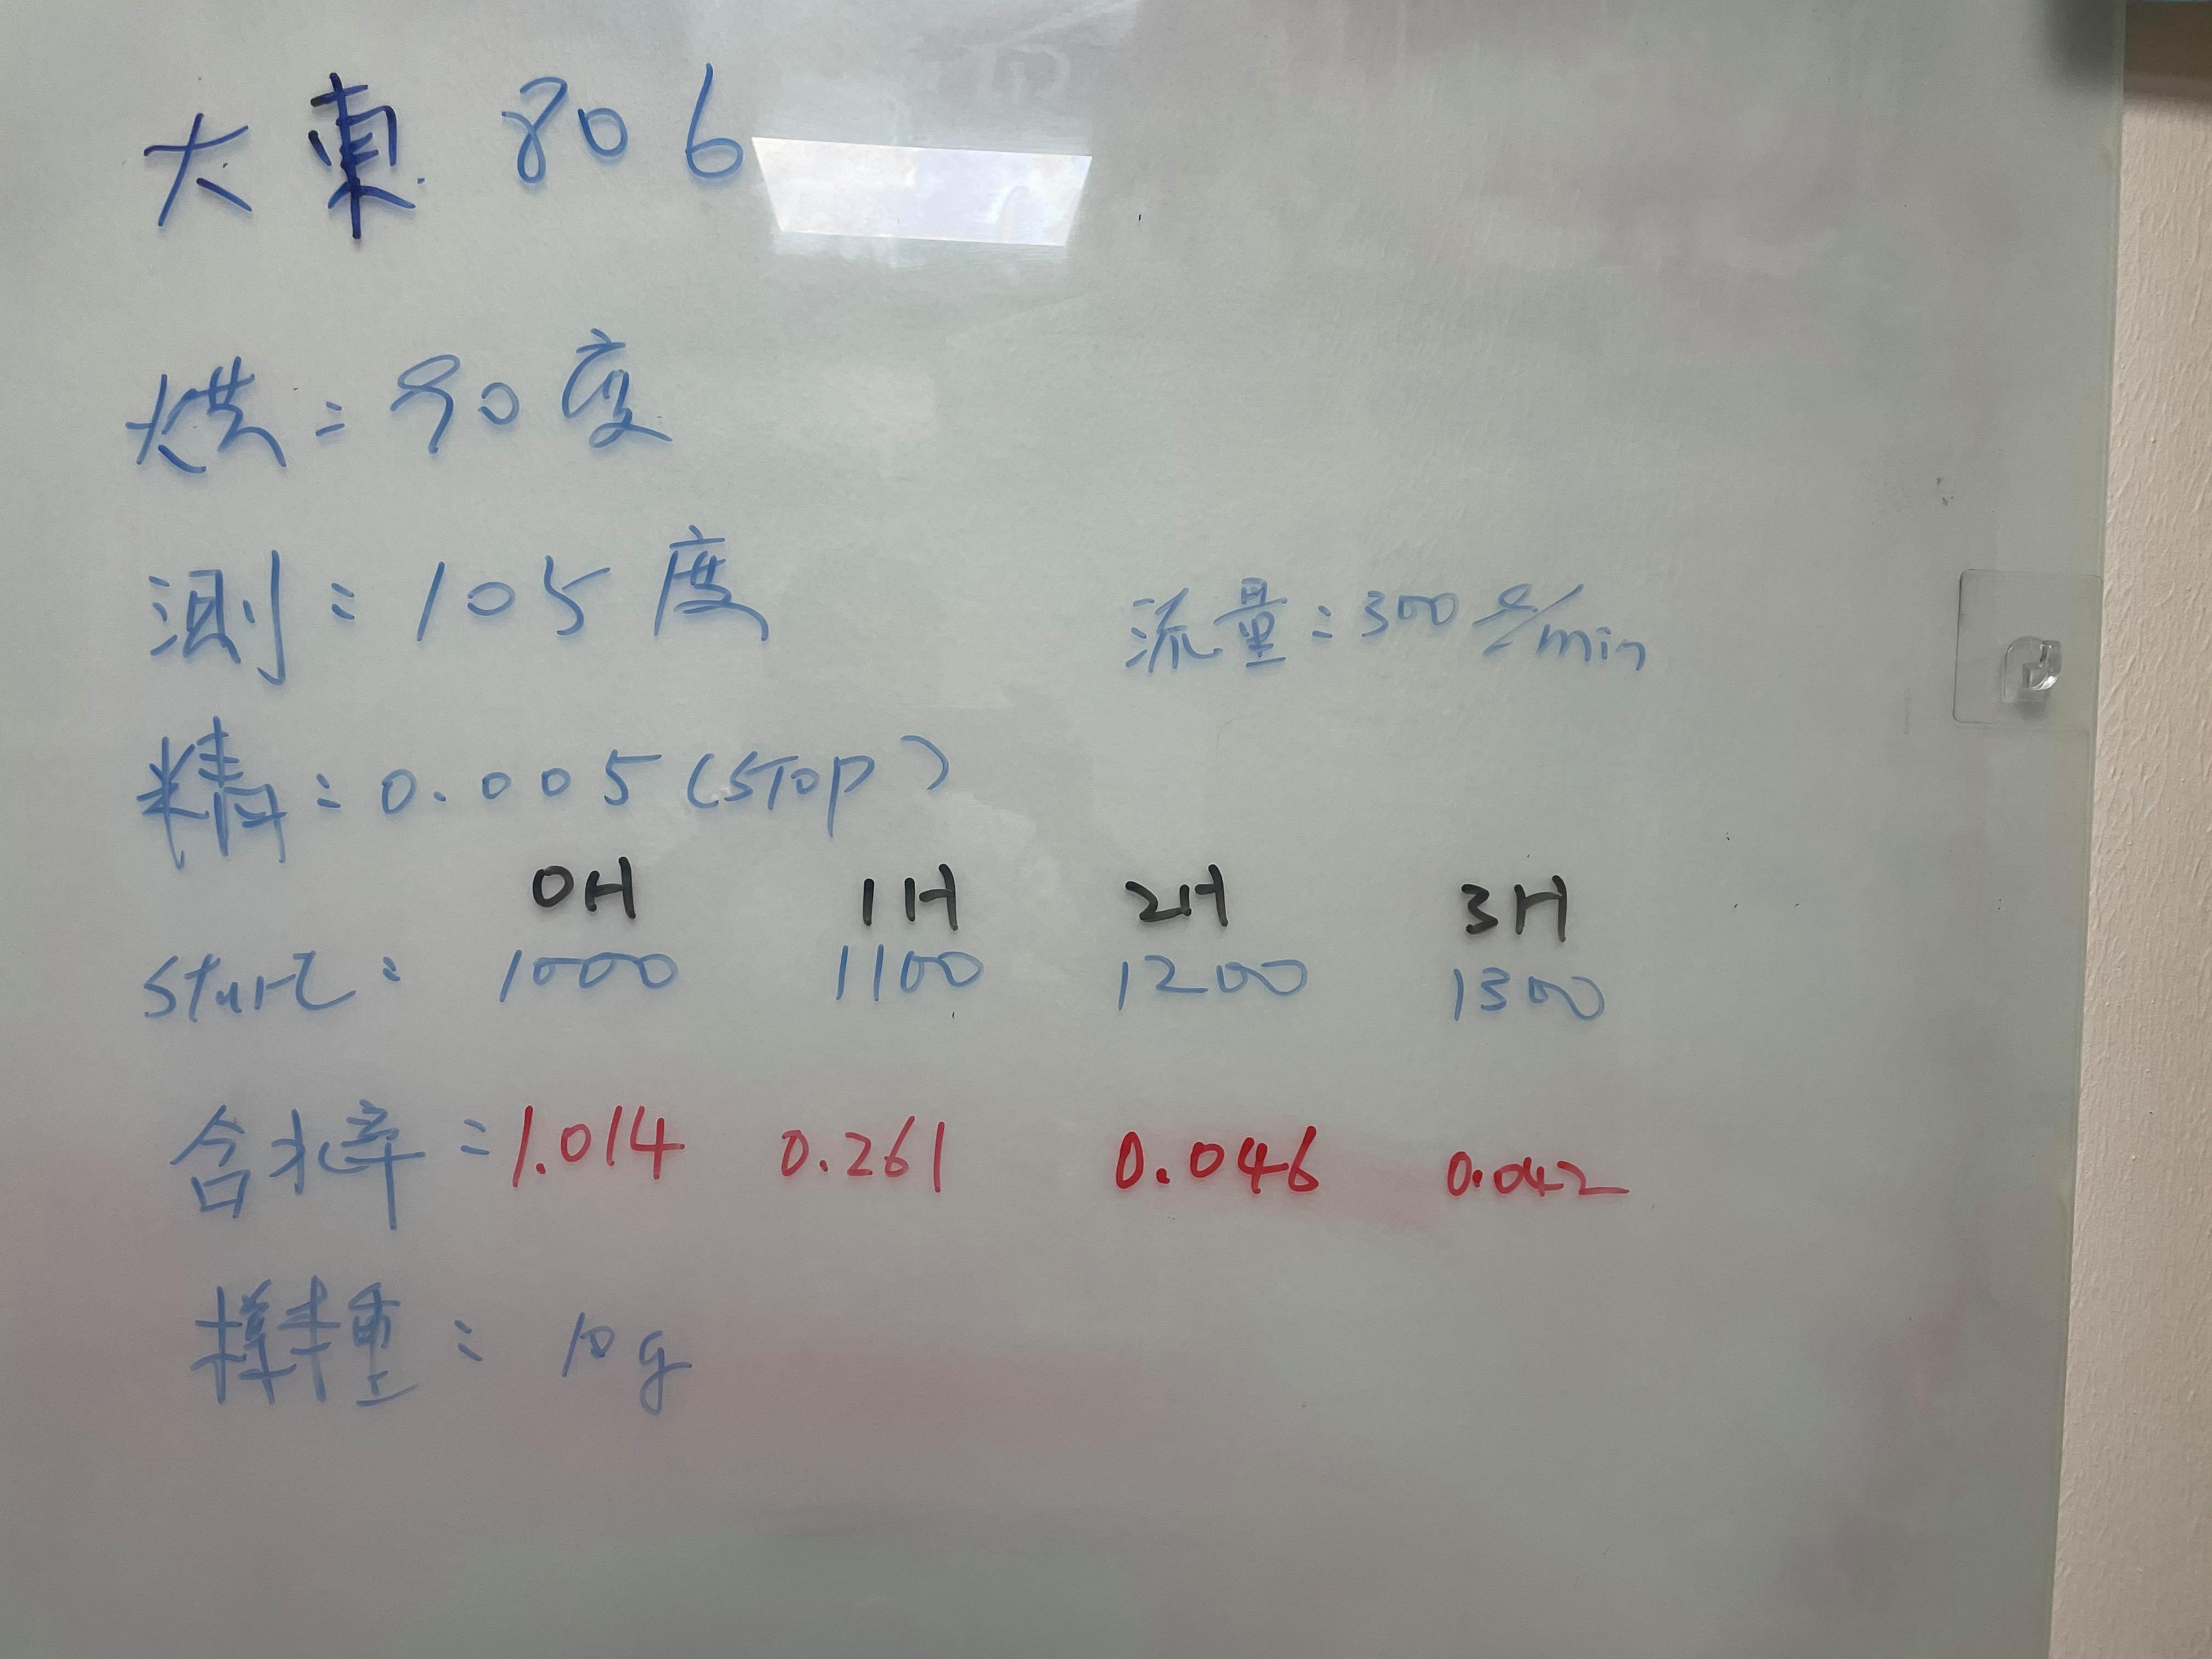 大東 806
烘：90度
測：105度
流量：300 ℓ/min
精：0.005 (STOP)
0H 1H 2H 3H
Start： 1000 1100 1200 1300
含水率：1.014 0.261 0.046 0.042
樣種：10g